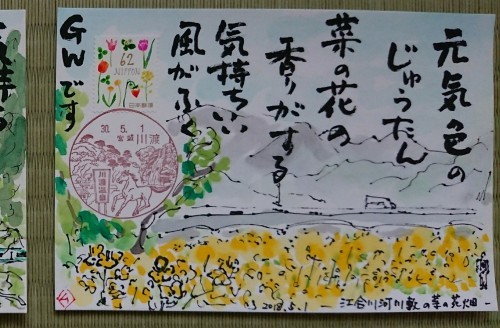 元気色の
じゅうたん
菜の花の
香りがする
気持ちいい
風がふく
GWです
62
NIPPON
日本郵便
30.5.1
宮城
川渡
川渡温泉
2018.5.1
江合川河川敷の菜の花畑